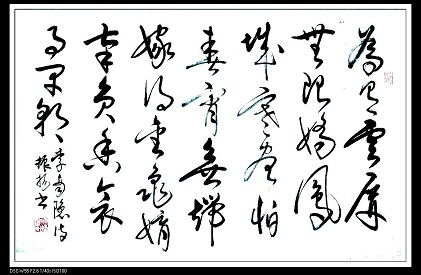 為有雲屏
無限嬌鳳
城寒盡怕
春宵無端
嫁得金龜婿
辜負香衾
事早朝
李商隱詩
振 書
DSC-W55 F2.8 1/40s ISO100